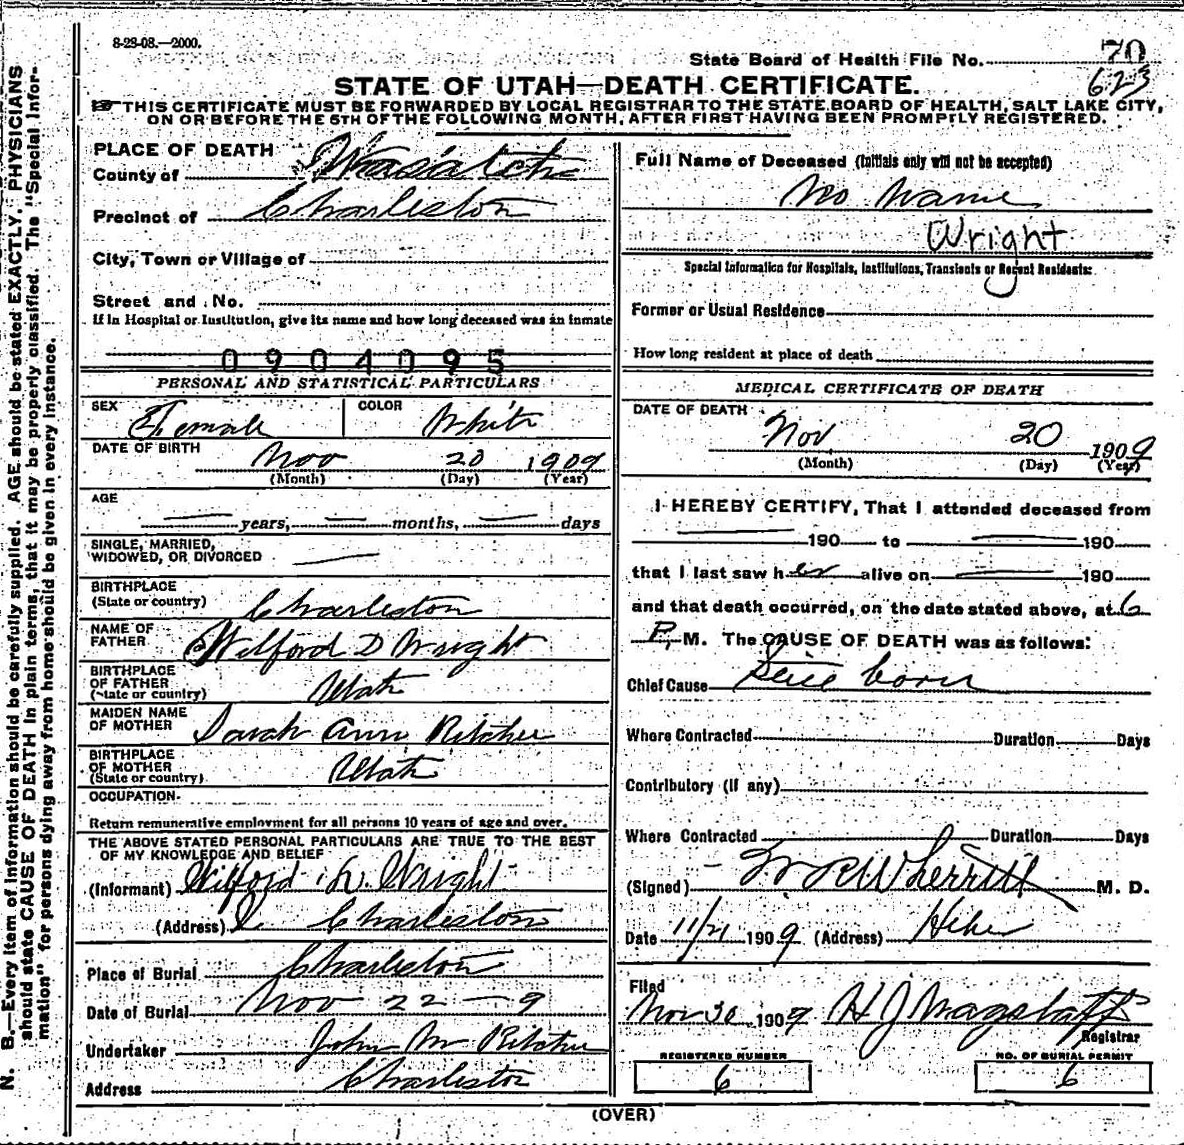 8-28-08.—2000.
State Board of Health File No. 70
623
STATE OF UTAH—DEATH CERTIFICATE.
THIS CERTIFICATE MUST BE FORWARDED BY LOCAL REGISTRAR TO THE STATE BOARD OF HEALTH, SALT LAKE CITY,
ON OR BEFORE THE 5TH OF THE FOLLOWING MONTH, AFTER FIRST HAVING BEEN PROMPTLY REGISTERED.
PLACE OF DEATH
County of Wasatch
Precinct of Charleston
City, Town or Village of
Street and No.
If in Hospital or Institution, give its name and how long deceased was an inmate
0904095
PERSONAL AND STATISTICAL PARTICULARS
SEX Female COLOR White
DATE OF BIRTH Nov 20 1909
(Month) (Day) (Year)
AGE
— years, — months, — days
SINGLE, MARRIED,
WIDOWED, OR DIVORCED —
BIRTHPLACE
(State or country) Charleston
NAME OF
FATHER Wilford D Wright
BIRTHPLACE
OF FATHER
(State or country) Utah
MAIDEN NAME
OF MOTHER Sarah Ann Ritchie
BIRTHPLACE
OF MOTHER
(State or country) Utah
OCCUPATION
Return remunerative employment for all persons 10 years of age and over.
THE ABOVE STATED PERSONAL PARTICULARS ARE TRUE TO THE BEST
OF MY KNOWLEDGE AND BELIEF
(Informant) Wilford Wright
(Address) Charleston
Place of Burial Charleston
Date of Burial Nov 22 — 9
Undertaker John M Ritchie
Address Charleston
Full Name of Deceased (Initials only will not be accepted)
No Name
Wright
Special Information for Hospitals, Institutions, Transients or Recent Residents:
Former or Usual Residence
How long resident at place of death
MEDICAL CERTIFICATE OF DEATH
DATE OF DEATH
Nov 20 1909
(Month) (Day) (Year)
I HEREBY CERTIFY, That I attended deceased from
— 190 to — 190
that I last saw her alive on — 190
and that death occurred, on the date stated above, at 6
P. M. The CAUSE OF DEATH was as follows:
Chief Cause Still born
Where Contracted Duration Days
Contributory (if any)
Where Contracted Duration Days
(Signed) Wherritt M. D.
Date 11/21 1909 (Address) Heber
Filed
Nov 30 1909 H J Wagstaff
Registrar
REGISTERED NUMBER
6
NO. OF BURIAL PERMIT
6
(OVER)
N. B.—Every item of information should be carefully supplied. AGE should be stated EXACTLY. PHYSICIANS
should state CAUSE OF DEATH in plain terms, that it may be properly classified. The "Special Infor-
mation" for persons dying away from home should be given in every instance.